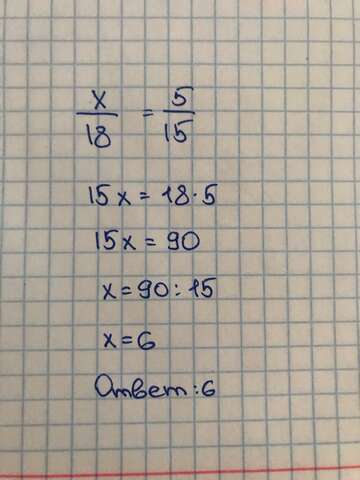 x/18 = 5/15
15x = 18·5
15x = 90
x = 90 : 15
x = 6
Ответ: 6